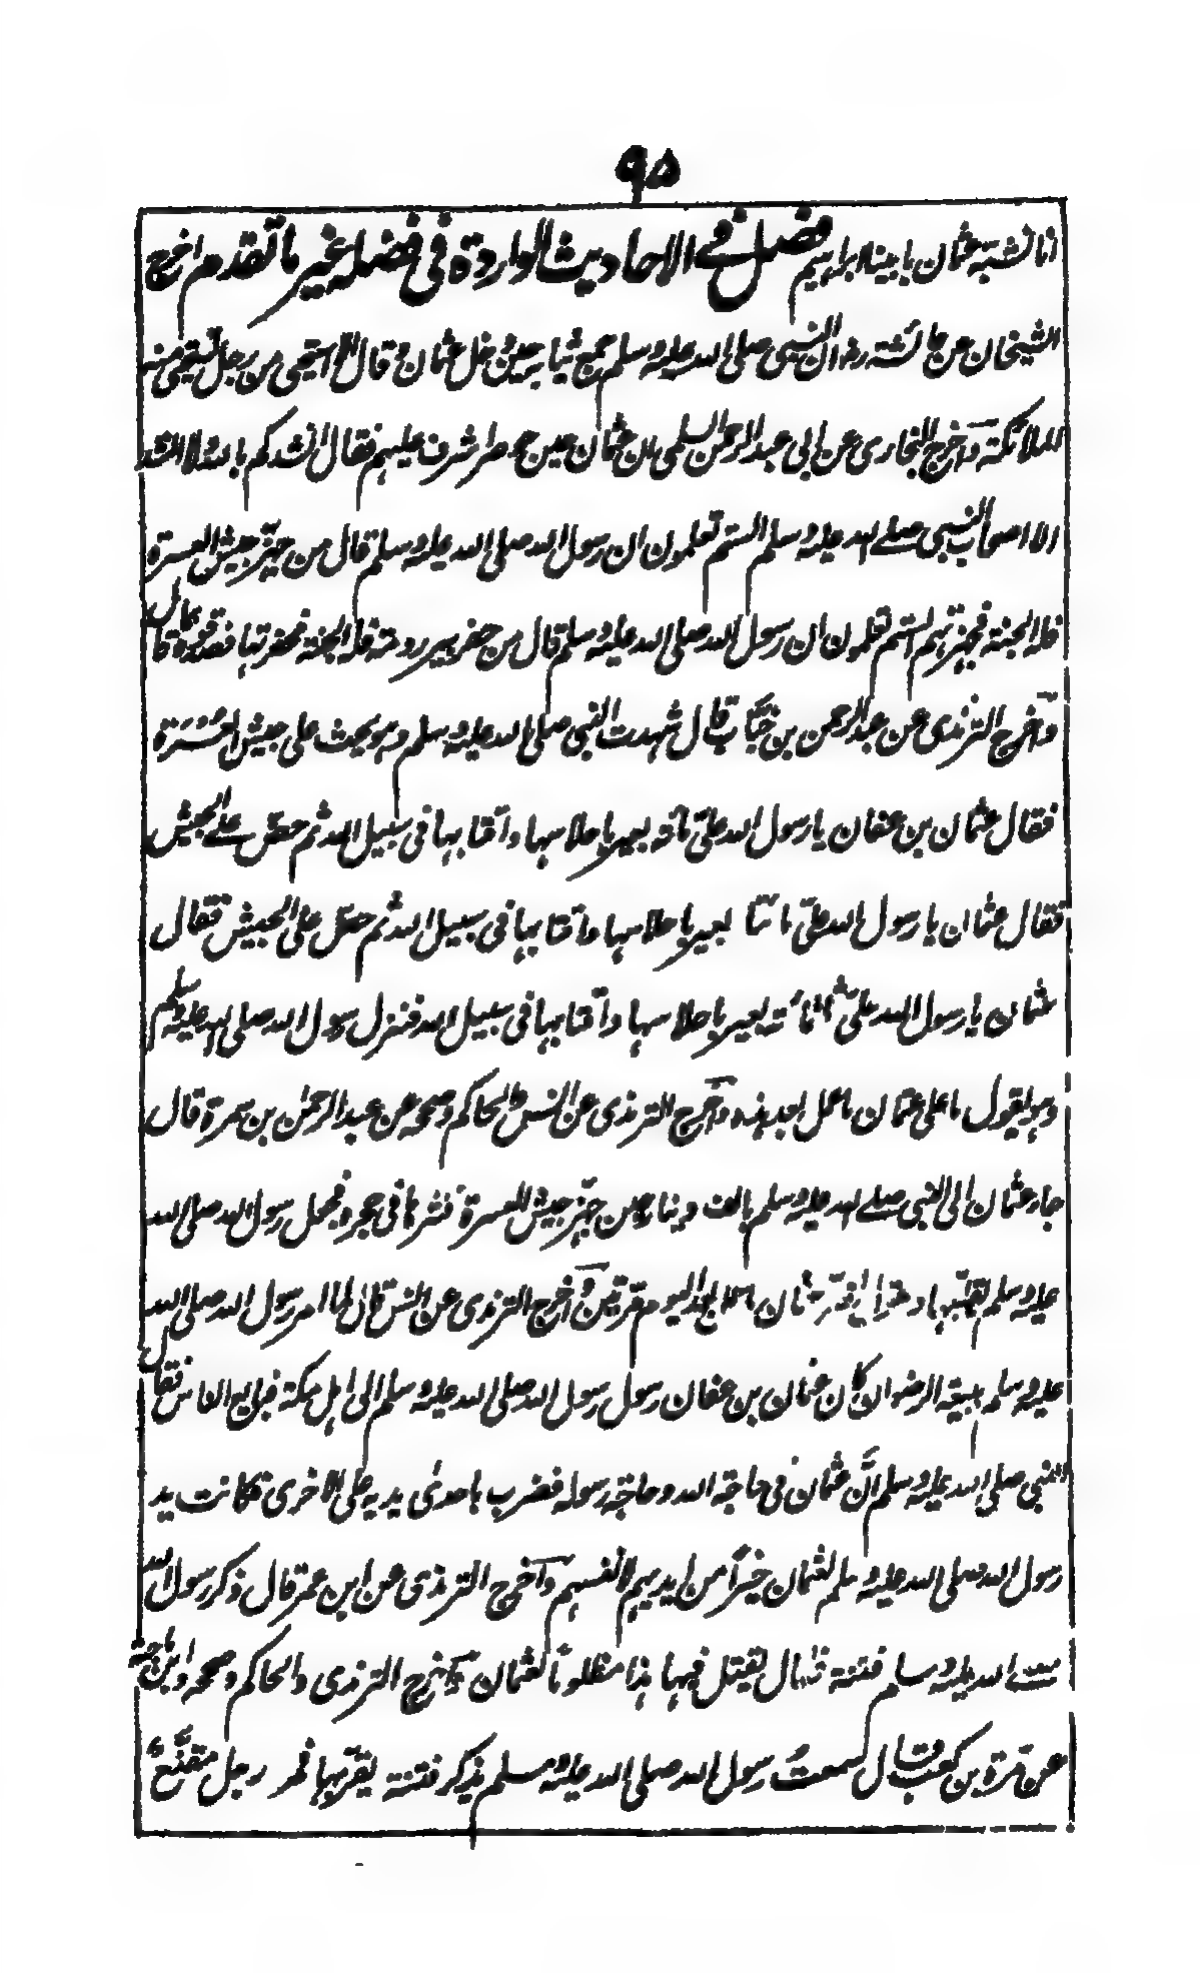 ٩٥
انا نشبه عثمان بابينا ابراهيم فصل في الاحاديث الواردة في فضله غير ما تقدم اخرج
الشيخان عن عائشة رض ان النبي صلى الله عليه وسلم جمع ثيابه حين دخل عثمان وقال الا استحيي من رجل تستحيي منه
الملائكة وآخرج البخاري عن ابي عبد الرحمن السلمي ان عثمان حين حوصر اشرف عليهم فقال انشدكم بالله ولا انشد
الا اصحاب النبي صلے الله عليه وسلم الستم تعلمون ان رسول الله صلى الله عليه وسلم قال من جهّز جيش العسرة
فله الجنة فجهزتهم الستم تعلمون ان رسول الله صلى الله عليه وسلم قال من حفر بير رومة فله الجنة فحفرتها فصدقوه بما قال
وآخرج الترمذي عن عبد الرحمن بن خبّاب قال شهدت النبي صلى الله عليه وسلم وهو يحث على جيش العُسْرَة
فقال عثمان بن عفان يا رسول الله عليّ مائة بعير باحلاسها واقتابها في سبيل الله ثم حضّ علے الجيش
فقال عثمان يا رسول الله عليّ مائتا بعير باحلاسها واقتابها في سبيل الله ثم حضّ على الجيش فقال
عثمان يا رسول الله عليّ ثلثمائة بعير باحلاسها واقتابها في سبيل الله فنزل رسول الله صلى الله عليه وسلم
وهو يقول ما على عثمان ما عمل بعد هذه وآخرج الترمذي عن انس والحاكم وصححه عن عبد الرحمٰن بن سمرة قال
جاء عثمان الى النبي صلے الله عليه وسلم بالف دينار حين جهّز جيش العسرة فنثرها في حجره فجعل رسول الله صلى الله
عليه وسلم يقلّبها و يقول ما ضرّ عثمان ما عمل بعد اليوم مرّتين وآخرج الترمذي عن انس قال لما امر رسول الله صلى الله
عليه وسلم ببيعة الرضوان كان عثمان بن عفان رسول رسول الله صلى الله عليه وسلم الى اهل مكة فبايع الناس فقال
النبي صلى الله عليه وسلم انّ عثمان في حاجة الله وحاجة رسوله فضرب باحدى يديه على الاخرى فكانت يد
رسول الله صلى الله عليه وسلم لعثمان خيرًا من ايديهم لانفسهم وآخرج الترمذي عن ابن عمر قال ذكر رسول الله
صلے الله عليه وسلم فتنة فقال يقتل فيها هذا مظلوما لعثمان وآخرج الترمذي والحاكم وصححه وابن ماجة
عن مرّة بن كعب قال سمعت رسول الله صلى الله عليه وسلم يذكر فتنة يقرّبها فمر رجل متقنّع